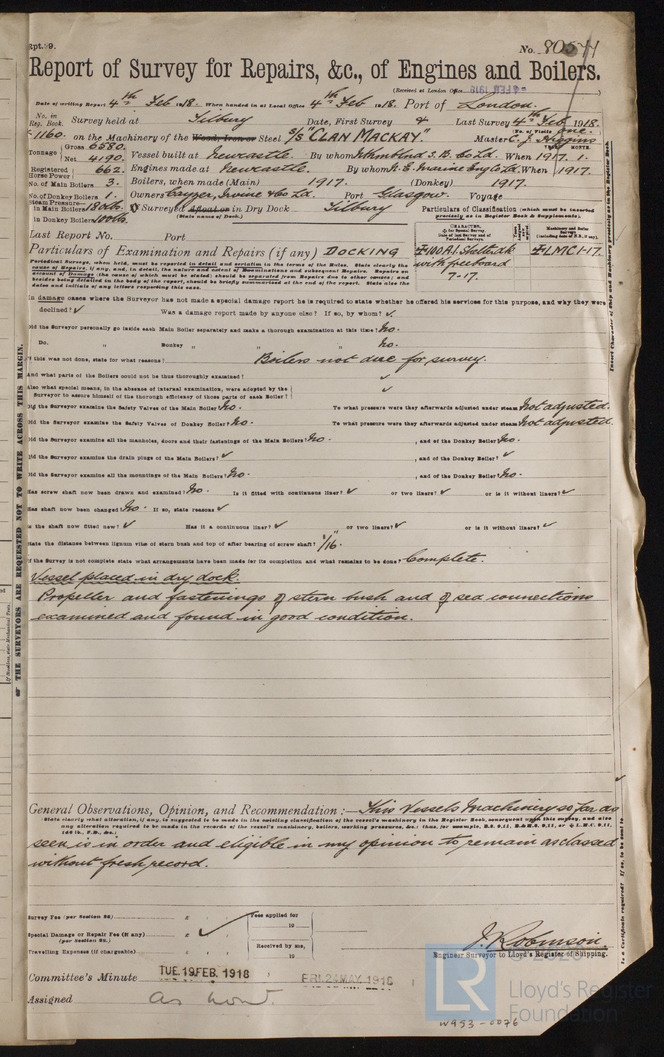 Rpt. 9.
No. 80544
Report of Survey for Repairs, &c., of Engines and Boilers.
(Received at London Office
Date of writing Report 4th Feb 1918. When handed in at Local Office 4th Feb 1918. Port of London.
No. in Reg. Book. Survey held at Tilbury Date, First Survey & Last Survey 4th Feb 1918.
(No. of Visits one.)
1160. on the Machinery of the Wood, Iron or Steel S/S "CLAN MACKAY." Master C. J. Higgins
Tonnage Gross 6580. Net 4190.
Vessel built at Newcastle. By whom Nthmbland S. B. Co Ld. When 1917. 1.
Registered Horse Power 662. Engines made at Newcastle. By whom N. E. Marine Eng Co Ld. When 1917.
No. of Main Boilers 3. Boilers, when made (Main) 1917. (Donkey) 1917.
No. of Donkey Boilers 1. Owners Cayzer, Irvine & Co Ld. Port Glasgow. Voyage
Steam Pressure in Main Boilers 180 lbs. in Donkey Boilers 100 lbs. Surveyed Afloat or in Dry Dock Tilbury
(State name of Dock.)
Particulars of Classification (which must be inserted precisely as in Register Book & Supplements).
Last Report No. Port
Particulars of Examination and Repairs (if any) DOCKING
+100A1. Shelterdk with freeboard 7-17.
+LMC 1-17.
In damage cases where the Surveyor has not made a special damage report he is required to state whether he offered his services for this purpose, and why they were
declined? ✓ Was a damage report made by anyone else? If so, by whom? ✓
Did the Surveyor personally go inside each Main Boiler separately and make a thorough examination at this time? No.
Do. " Donkey " " " No.
If this was not done, state for what reasons? Boilers not due for survey.
And what parts of the Boilers could not be thus thoroughly examined? ✓
Also what special means, in the absence of internal examination, were adopted by the Surveyor to assure himself of the thorough efficiency of those parts of each Boiler? ✓
Did the Surveyor examine the Safety Valves of the Main Boiler? No. To what pressure were they afterwards adjusted under steam Not adjusted.
Did the Surveyor examine the Safety Valves of Donkey Boiler? No. To what pressure were they afterwards adjusted under steam Not adjusted
Did the Surveyor examine all the manholes, doors and their fastenings of the Main Boilers? No , and of the Donkey Boiler? No.
Did the Surveyor examine the drain plugs of the Main Boilers? ✓ , and of the Donkey Boiler? ✓
Did the Surveyor examine all the mountings of the Main Boilers? No. , and of the Donkey Boiler? No.
Has screw shaft now been drawn and examined? No. Is it fitted with continuous liner? ✓ or two liners? ✓ or is it without liners? ✓
Has shaft now been changed? No. If so, state reasons ✓
Is the shaft now fitted new? ✓ Has it a continuous liner? ✓ or two liners? ✓ or is it without liners? ✓
State the distance between lignum vitæ of stern bush and top of after bearing of screw shaft? 1/16.
If the Survey is not complete state what arrangements have been made for its completion and what remains to be done? Complete.
Vessel placed in dry dock.
Propeller and fastenings of stern bush and of sea connections
examined and found in good condition.
General Observations, Opinion, and Recommendation :— This Vessels Machinery so far as
seen is in order and eligible in my opinion to remain as classed
without fresh record.
Survey Fee (per Section 28) £
Special Damage or Repair Fee (if any) (per Section 28.) £
Travelling Expenses (if chargeable) £
Fees applied for 19
Received by me, 19
J. Robinson.
Engineer Surveyor to Lloyd's Register of Shipping.
Committee's Minute TUE. 19 FEB. 1918
FRI. 24 MAY. 1918
Assigned As now.
OF THE SURVEYORS ARE REQUESTED NOT TO WRITE ACROSS THIS MARGIN.
LR
Lloyd's Register
Foundation
W953-0076